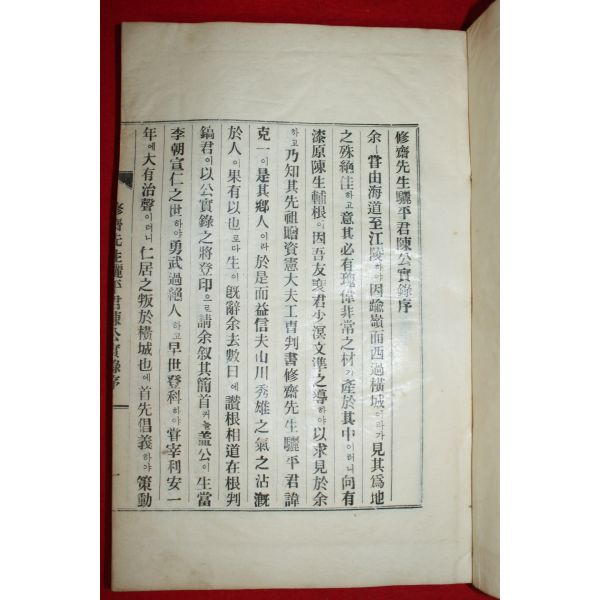 修齋先生驪平君陳公實錄序
余ㅣ甞由海道至江陵하야因踰嶺而西過橫城이라가見其爲地
之殊絶佳하고意其必有瑰偉非常之材가產於其中이러니向有
漆原陳生輔根이因吾友裵君少溟文準之導하야以求見於余
하고乃知其先祖贈資憲大夫工曹判書修齋先生驪平君諱
克一이是其鄕人이라於是而益信夫山川秀雄之氣之沾漑
於人이果有以也로다生이旣辭余去數日에讚根相道在根判
鎬君이以公實錄之將登印으로請余叙其簡首커늘盖公이生當
李朝宣仁之世하야勇武過絕人하고早世登科하야甞宰利安一
年에大有治聲이러니仁居之叛於橫城也에首先倡義하야策動
修齋先生驪平君陳公實錄序 一